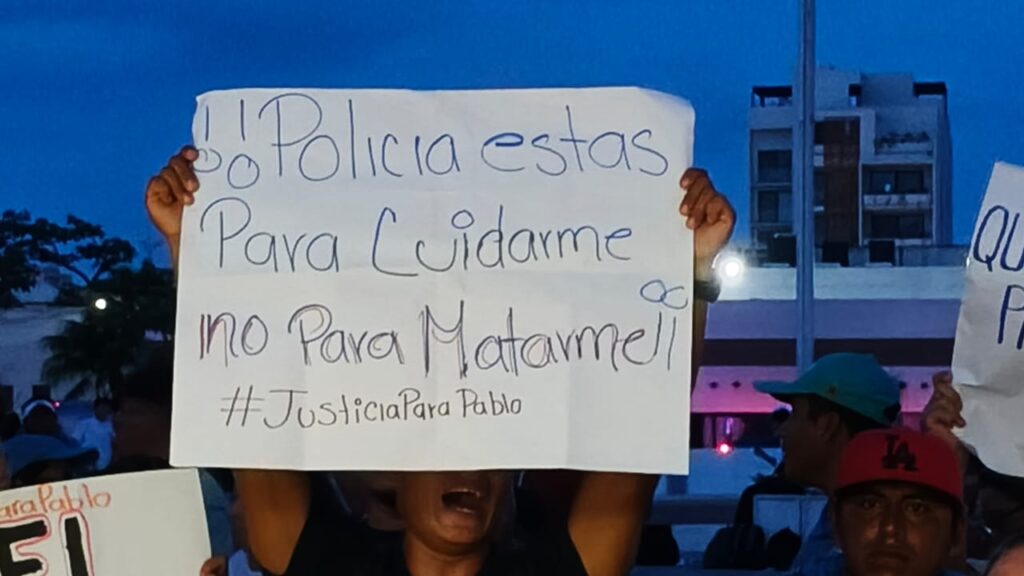 !! Policia estas
Para Cuidarme
no Para Matarme ¡¡
#JusticiaPara Pablo
araPablo
El
QU
P
LA